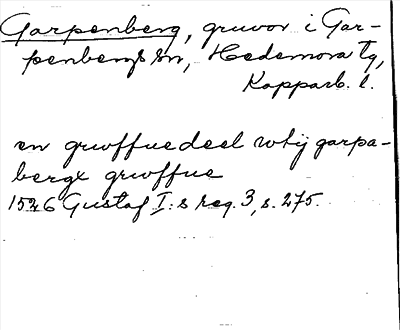 Garpenberg, gruvor i Gar-
penbergs sn, Hedemora tg,
Kopparb. l.
en grwffuedeel wtij garpa-
bergx grwffue
1526 Gustaf I:s reg. 3, s. 275.